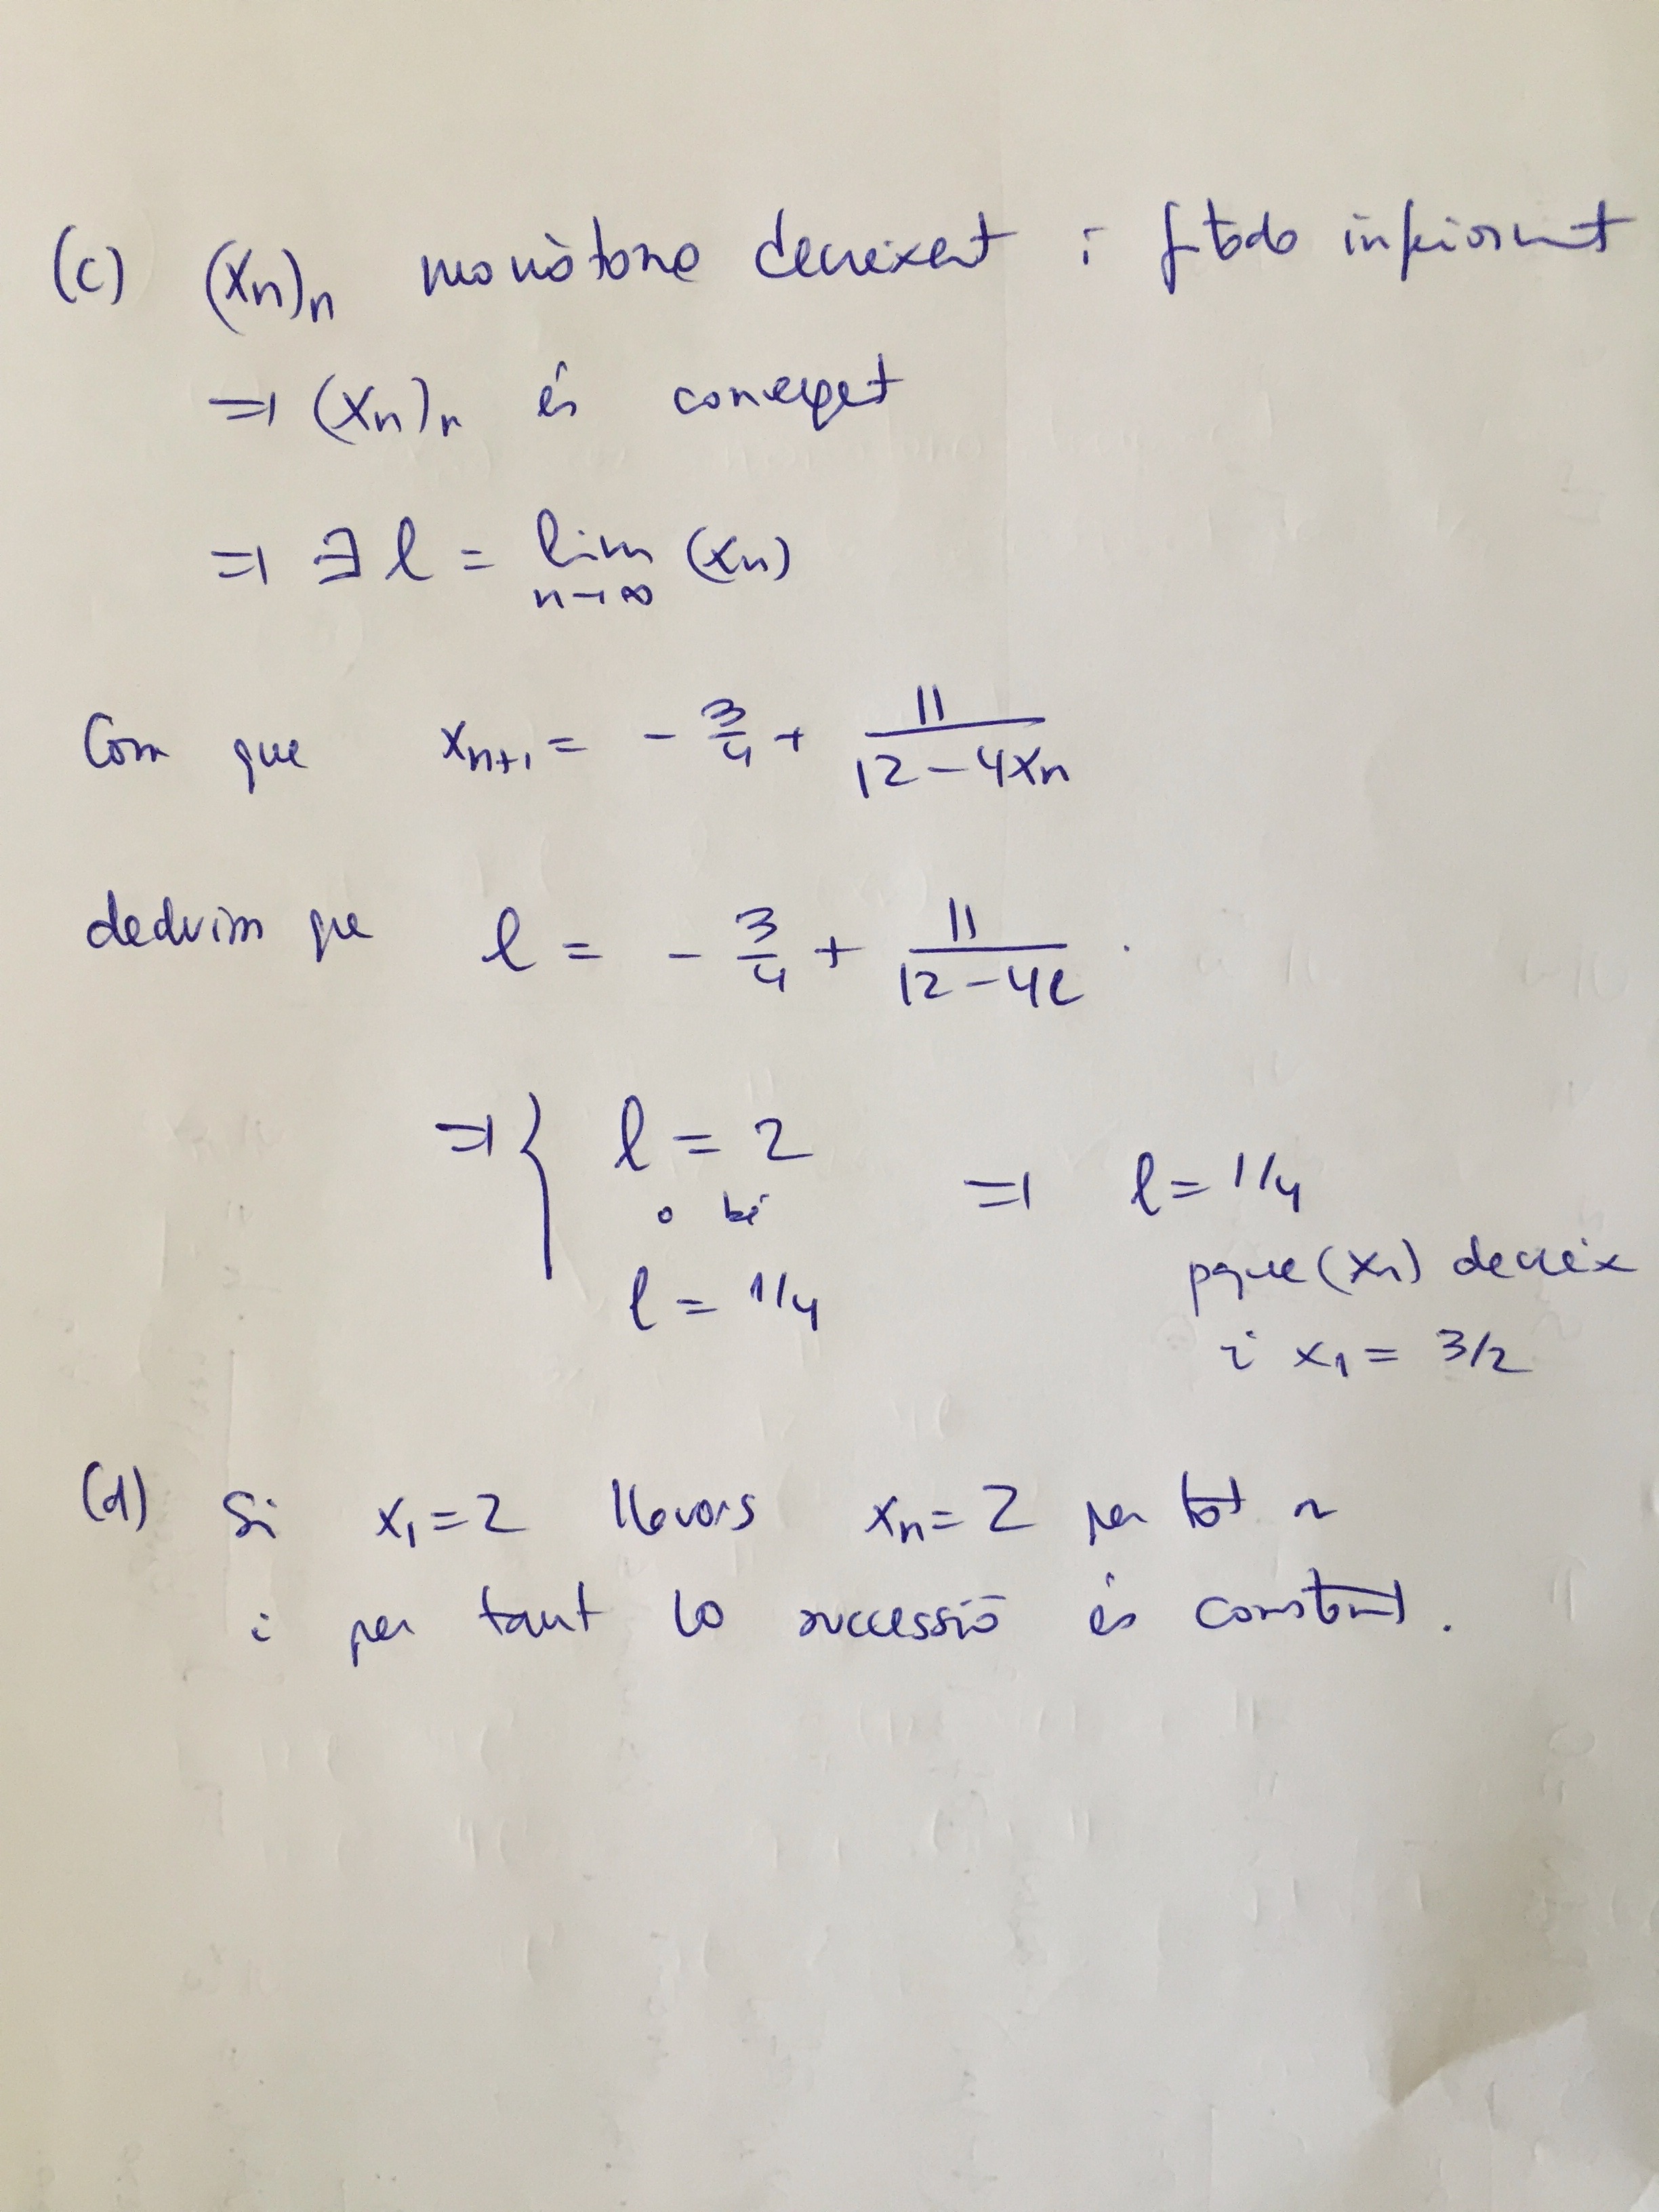 (c) (xn)n monòtona decreixent i fitada inferiorment
⇒ (xn)n és convergent
⇒ ∃ l = lim n→∞ (xn)
Com que xn+1 = - 3/4 + 11/(12-4xn)
deduim que l = - 3/4 + 11/(12-4l).
⇒ { l = 2
o bé ⇒ l = 1/4
l = 1/4
perque (xn) decreix
i x1 = 3/2
(d) Si x1=2 llavors xn=2 per tot n
i per tant la successió és constant.